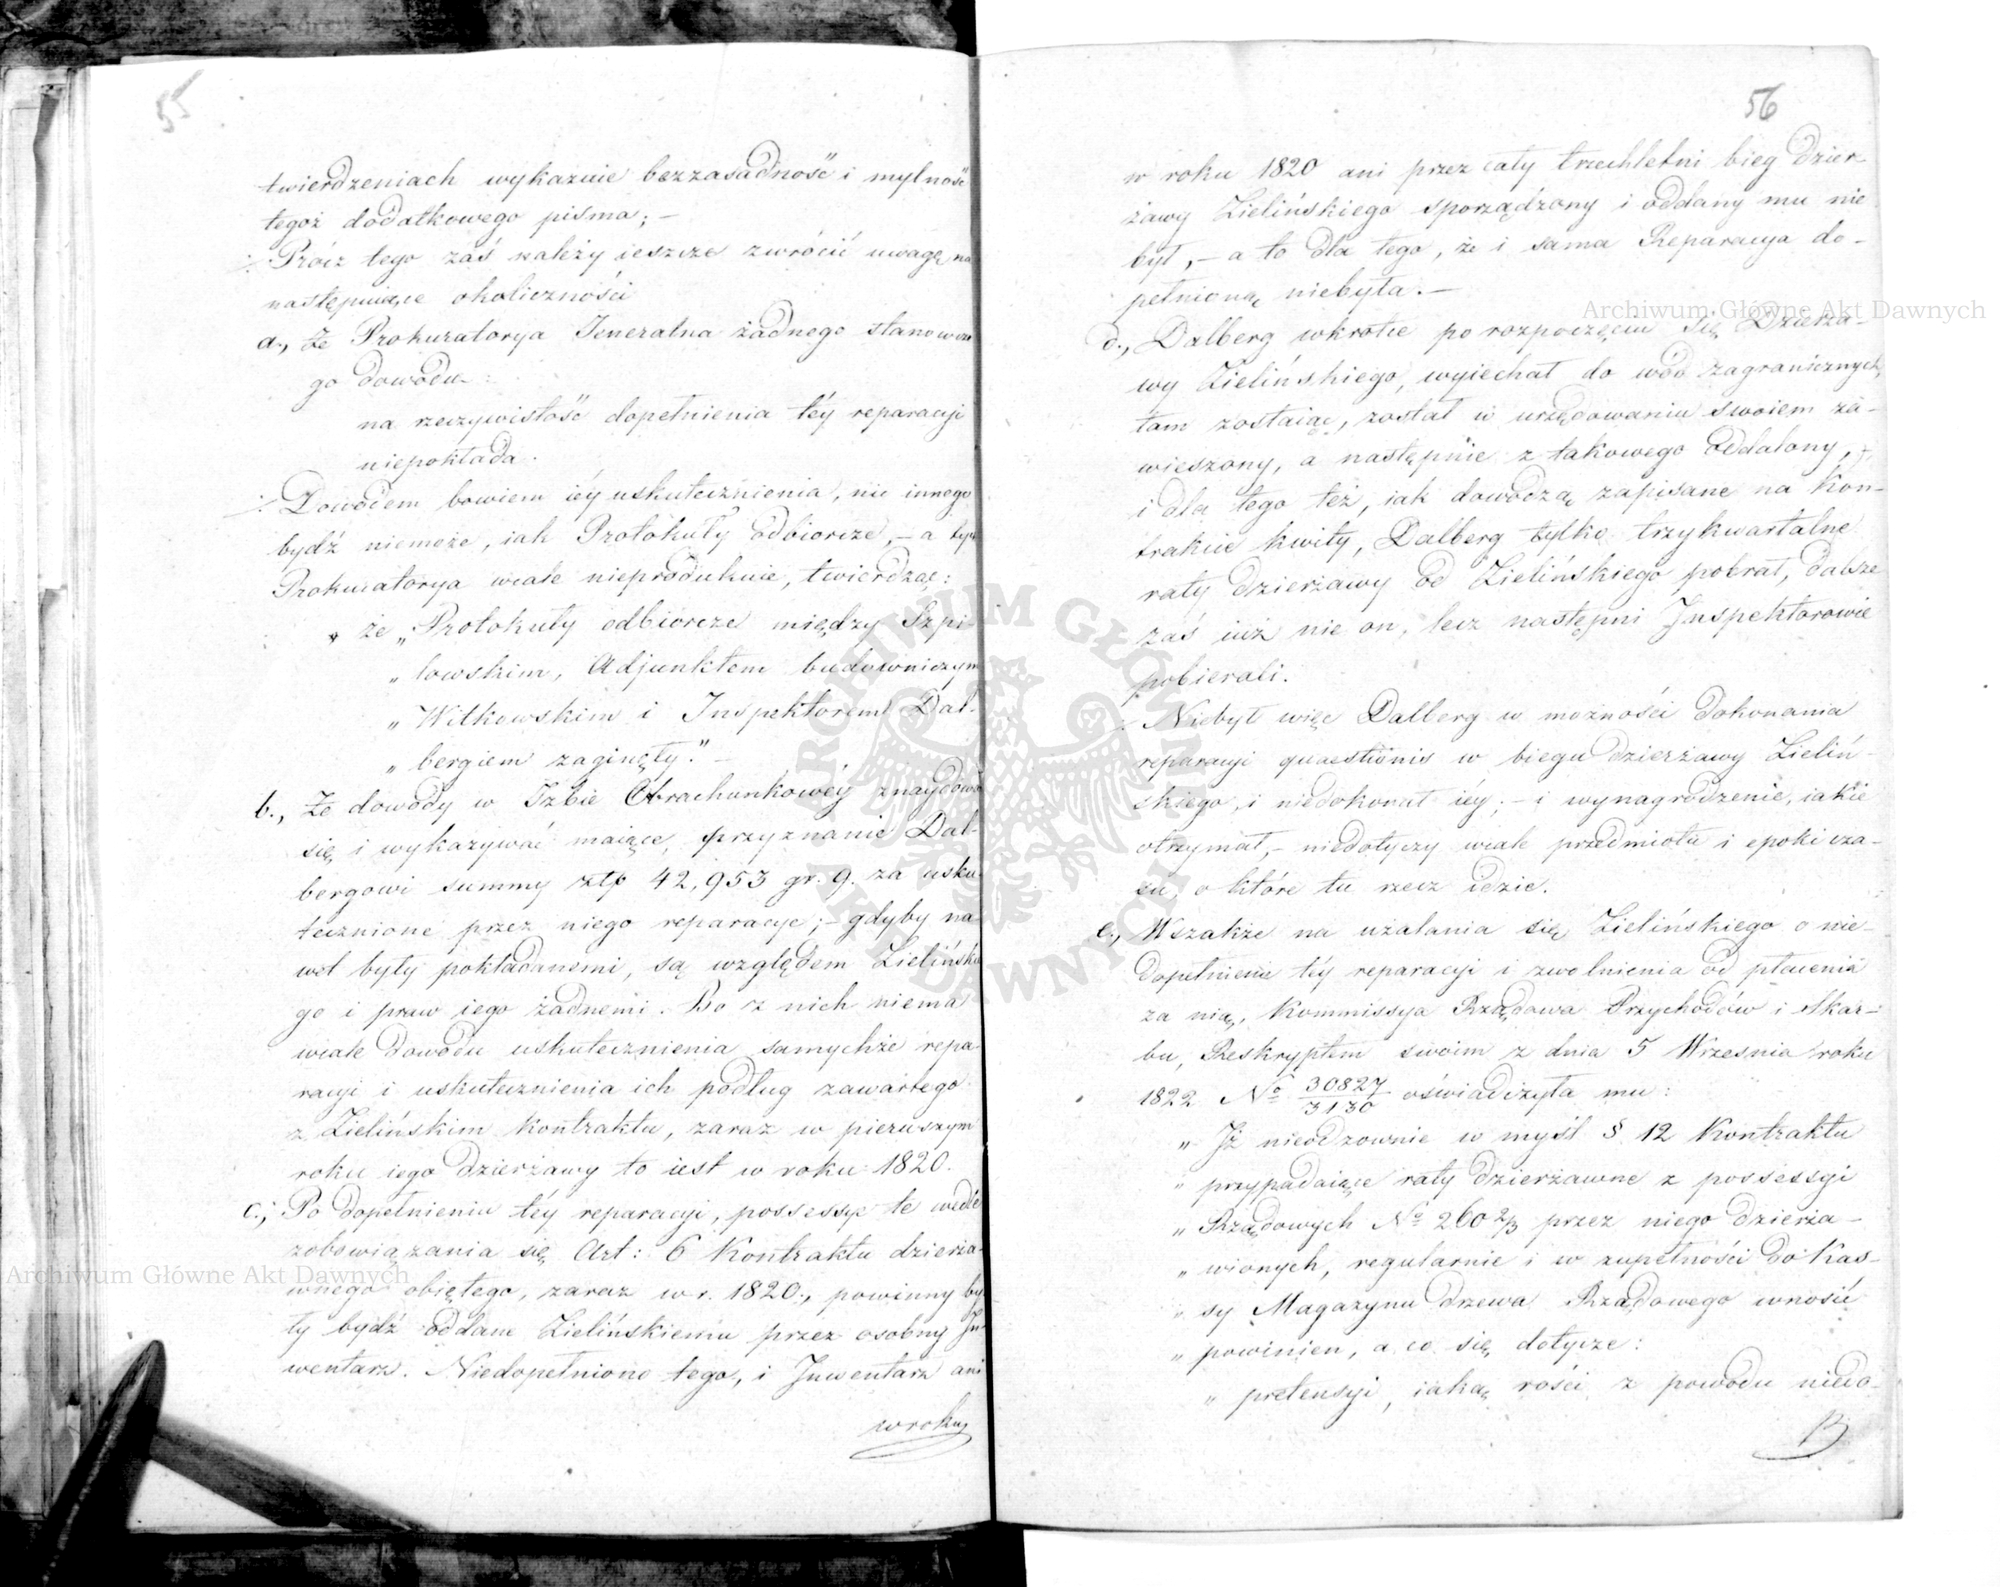 55
twierdzeniach wykazuie bezzasadność i mylność
tegoż dodatkowego pisma; —
Prócz tego zaś należy ieszcze zwrócić uwagę na
następuiące okoliczności
a., że Prokuratorya Jeneralna żadnego stanowcze
go dowodu
na rzeczywistość dopełnienia téy reparacyi
niepokłada.
Dowodem bowiem iéy uskutecznienia, nic innego
bydź niemoże, iak Protokuły odbiorcze, — a tych
Prokuratorya wcale nieprodukuie, twierdząc:
że „Protokuły odbiorcze między Szpi-
„ lowskim, Adjunktem budowniczym
„ Witkowskim i Inspektorem Dal-
„ bergiem zaginęły." —
b., Że dowody w Izbie Obrachunkowéy znaydować
się i wykazywać maiące, przyznanie Dal-
bergowi summy złp 42,953 gr. 9. za usku-
tecznione przez niego reparacye; — gdyby na-
wet były pokładanemi, są względem Zielińskie
go i praw iego żadnemi. Bo z nich niema
wcale dowodu uskutecznienia samychże repa-
racyi i uskutecznienia ich podług zawartego
z Zielińskim Kontraktu, zaraz w pierwszym
roku iego dzierżawy to iest w roku 1820.
c., Po dopełnieniu téy reparacyi, possessye te wedle
zobowiązania się Art: 6 Kontraktu dzierża-
wnego obiętego, zaraz w r. 1820., powinny by-
ły bydź oddane Zielińskiemu przez osobny In-
wentarz. Niedopełniono tego, i Inwentarz ani
w roku
56
w roku 1820 ani przez cały trzechletni bieg dzier-
żawy Zielińskiego sporządzony i oddany mu nie
był, — a to dla tego, że i sama Reparacya do-
pełnioną niebyła. —
d., Dalberg wkrótce po rozpoczęciu się Dzierża-
wy Zielińskiego, wyiechał do wód zagranicznych,
tam zostaiąc, został w urzędowaniu swoiem za-
wieszony, a następnie z takowego oddalony,
i dla tego też, iak dowodzą zapisane na Kon-
trakcie kwity, Dalberg tylko trzykwartalne
raty dzierżawy od Zielińskiego pobrał, dalsze
zaś iuż nie on, lecz następni Inspektorowie
pobierali.
Niebył więc Dalberg w możności dokonania
reparacyi quaestionis w biegu dzierżawy Zieliń-
skiego, i niedokonał iéy; — i wynagrodzenie, iakie
otrzymał, — niedotyczy wcale przedmiotu i epoki cza-
su, o które tu rzecz idzie.
e., Wszakże na użalania się Zielińskiego o nie-
dopełnienie téy reparacyi i zwolnienia od płacenia
za nią, Kommissya Rządowa Przychodów i Skar-
bu, Reskryptem swoim z dnia 5 Wrzesnia roku
1822 No 30827/3130 oświadczyła mu:
„ Iż nieodzownie w myśl § 12 Kontraktu
„ przypadaiące raty dzierżawne z possessyi
„ Rządowych No 260 2/3 przez niego dzierża-
„ wionych, regularnie i w zupełności do Kas-
„ sy Magazynu drzewa Rządowego wnosić
„ powinien, a co się dotycze:
„ pretensyi, iaką rości z powodu niedo-
Archiwum Główne Akt Dawnych
Archiwum Główne Akt Dawnych
ARCHIWUM GŁÓWNE AKT DAWNYCH